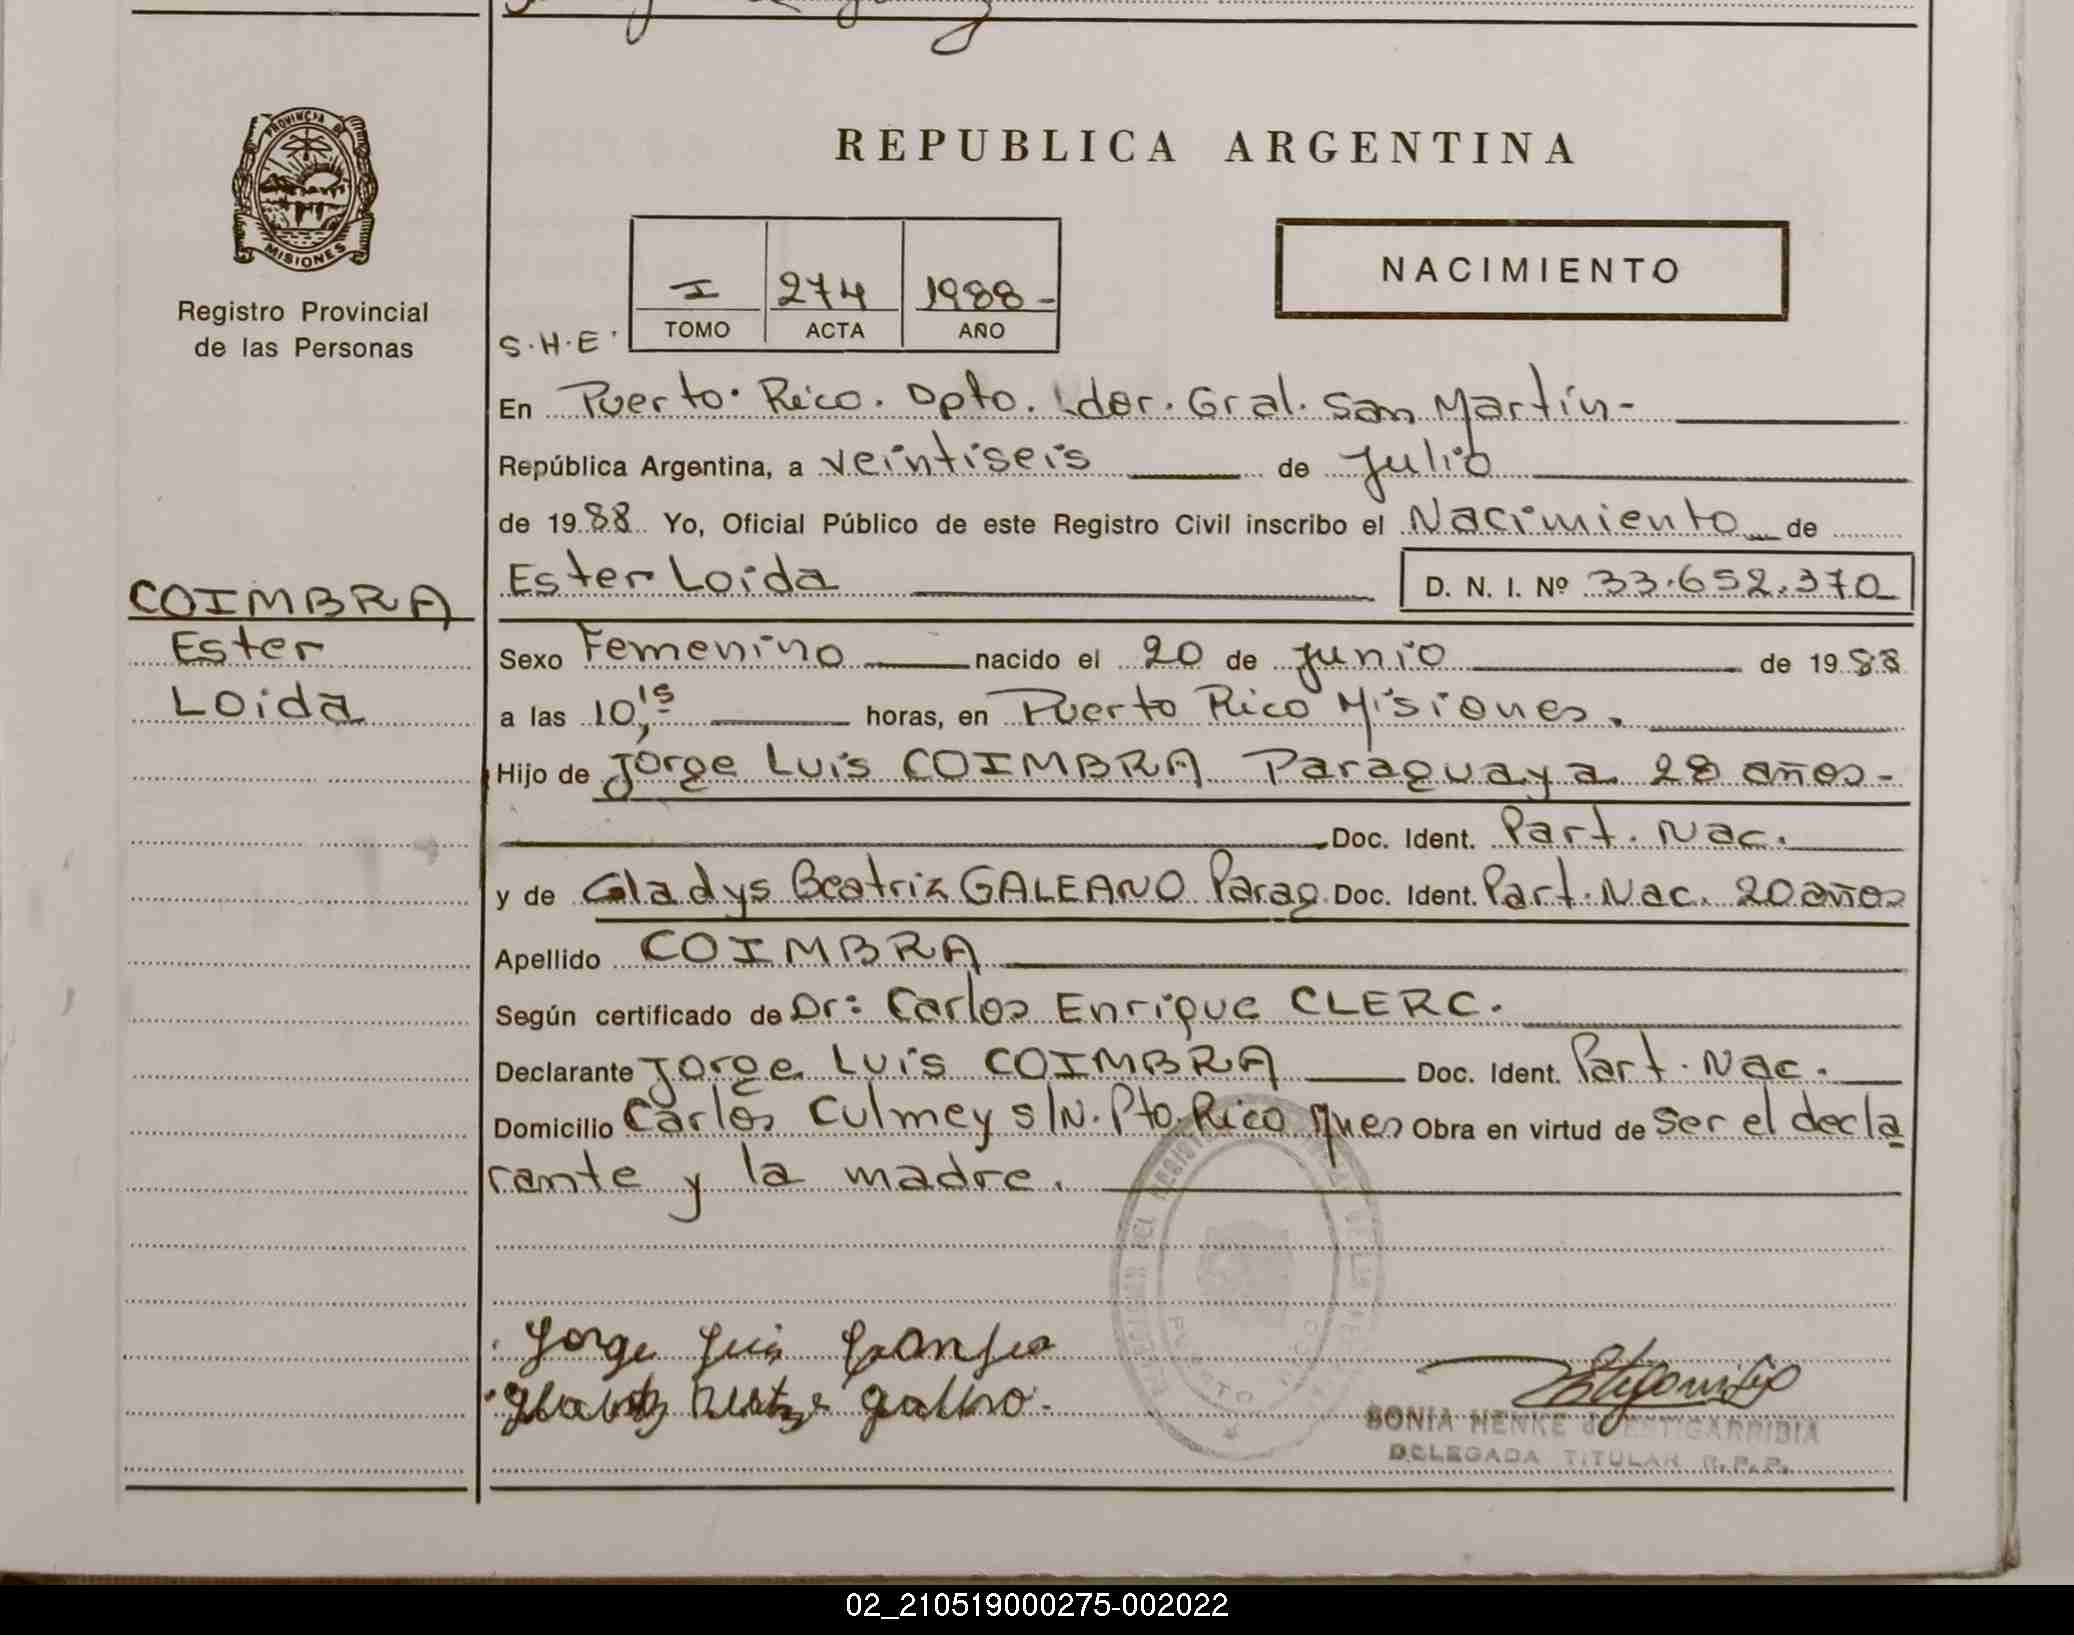 REPUBLICA ARGENTINA
PROVINCIA DE
MISIONES
Registro Provincial
de las Personas
NACIMIENTO
I 274 1988-
TOMO ACTA AÑO
S.H.E.
En Puerto Rico. Dpto. Ldor. Gral. San Martín-
República Argentina, a veintiseis de Julio
de 1988 Yo, Oficial Público de este Registro Civil inscribo el Nacimiento de
Ester Loida D. N. I. Nº 33.652.370
COIMBRA
Ester
Loida
Sexo Femenino nacido el 20 de Junio de 1988
a las 10,15 horas, en Puerto Rico Misiones.
Hijo de Jorge Luis COIMBRA Paraguaya 28 años-
Doc. Ident. Part. Nac.
y de Gladys Beatriz GALEANO Parag. Doc. Ident. Part. Nac. 20 años
Apellido COIMBRA
Según certificado de Dr: Carlos Enrique CLERC.
Declarante Jorge Luis COIMBRA Doc. Ident. Part. Nac.
Domicilio Carlos Culmey s/N. Pto. Rico Mnes Obra en virtud de ser el decla
rante y la madre.
Jorge Luis
SONIA HENKE de
DELEGADA TITULAR R.P.P.
02_210519000275-002022